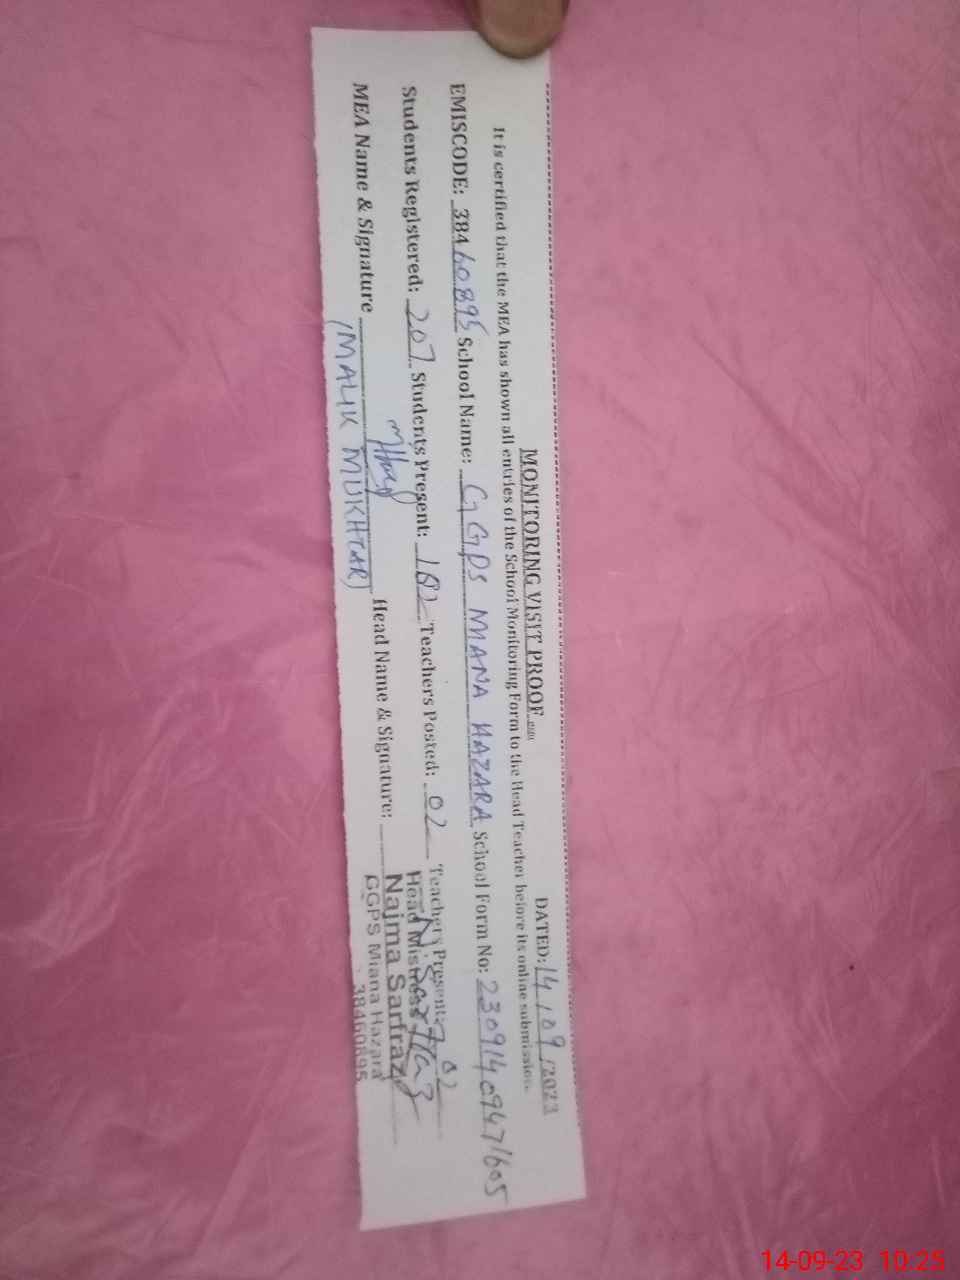 MONITORING VISIT PROOF
DATED: 14/09/2023
It is certified that the MEA has shown all entries of the School Monitoring Form to the Head Teacher before its online submission.
EMISCODE: 38460895 School Name: GGPS MIANA HAZARA School Form No: 23091409471605
Students Registered: 207 Students Present: 182 Teachers Posted: 02 Teachers Present: 02
MEA Name & Signature Head Name & Signature:
(MALIK MUKHTAR)
Head Mistress
Najma Sarfraz
GGPS Miana Hazara
38460895
14-09-23 10:25